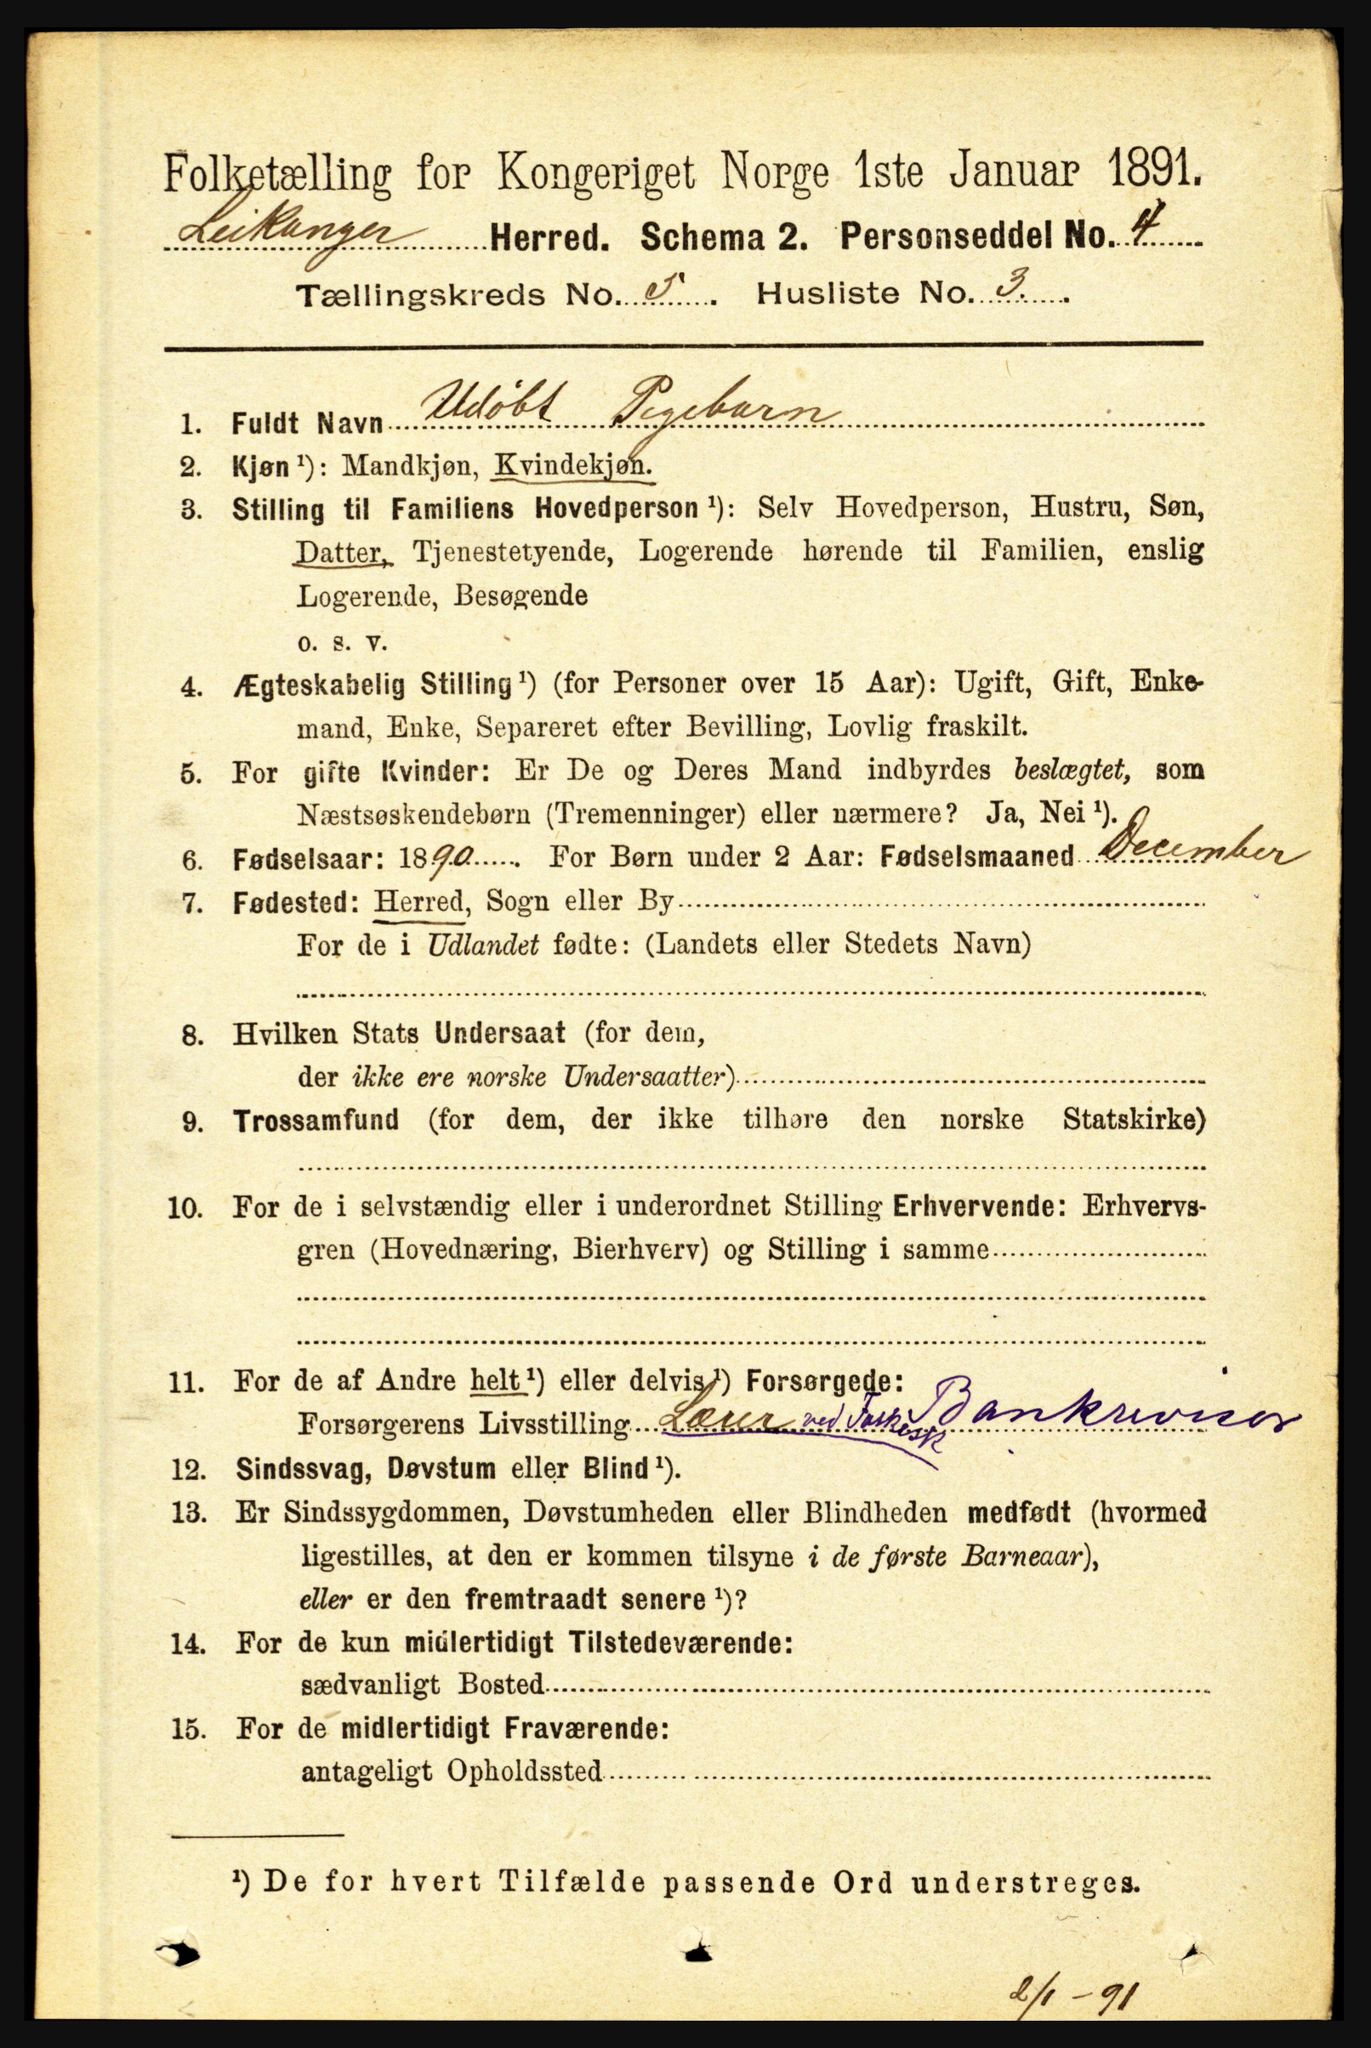 Folketælling for Kongeriget Norge 1ste Januar 1891.
Leikanger Herred. Schema 2. Personseddel No. 4
Tællingskreds No. 5. Husliste No. 3.
1. Fuldt Navn Udøbt Pigebarn
2. Kjøn ¹): Mandkjøn, Kvindekjøn.
3. Stilling til Familiens Hovedperson ¹): Selv Hovedperson, Hustru, Søn,
Datter, Tjenestetyende, Logerende hørende til Familien, enslig
Logerende, Besøgende
o. s. v.
4. Ægteskabelig Stilling ¹) (for Personer over 15 Aar): Ugift, Gift, Enke-
mand, Enke, Separeret efter Bevilling, Lovlig fraskilt.
5. For gifte Kvinder: Er De og Deres Mand indbyrdes beslægtet, som
Næstsøskendebørn (Tremenninger) eller nærmere? Ja, Nei ¹).
6. Fødselsaar: 1890. For Børn under 2 Aar: Fødselsmaaned December
7. Fødested: Herred, Sogn eller By
For de i Udlandet fødte: (Landets eller Stedets Navn)
8. Hvilken Stats Undersaat (for dem,
der ikke ere norske Undersaatter)
9. Trossamfund (for dem, der ikke tilhøre den norske Statskirke)
10. For de i selvstændig eller i underordnet Stilling Erhvervende: Erhvervs-
gren (Hovednæring, Bierhverv) og Stilling i samme
11. For de af Andre helt ¹) eller delvis ¹) Forsørgede:
Forsørgerens Livsstilling Lærer ved Folkesk Bankrevisor
12. Sindssvag, Døvstum eller Blind ¹).
13. Er Sindssygdommen, Døvstumheden eller Blindheden medfødt (hvormed
ligestilles, at den er kommen tilsyne i de første Barneaar),
eller er den fremtraadt senere ¹)?
14. For de kun midlertidigt Tilstedeværende:
sædvanligt Bosted
15. For de midlertidigt Fraværende:
antageligt Opholdssted
¹) De for hvert Tilfælde passende Ord understreges.
2/1 - 91